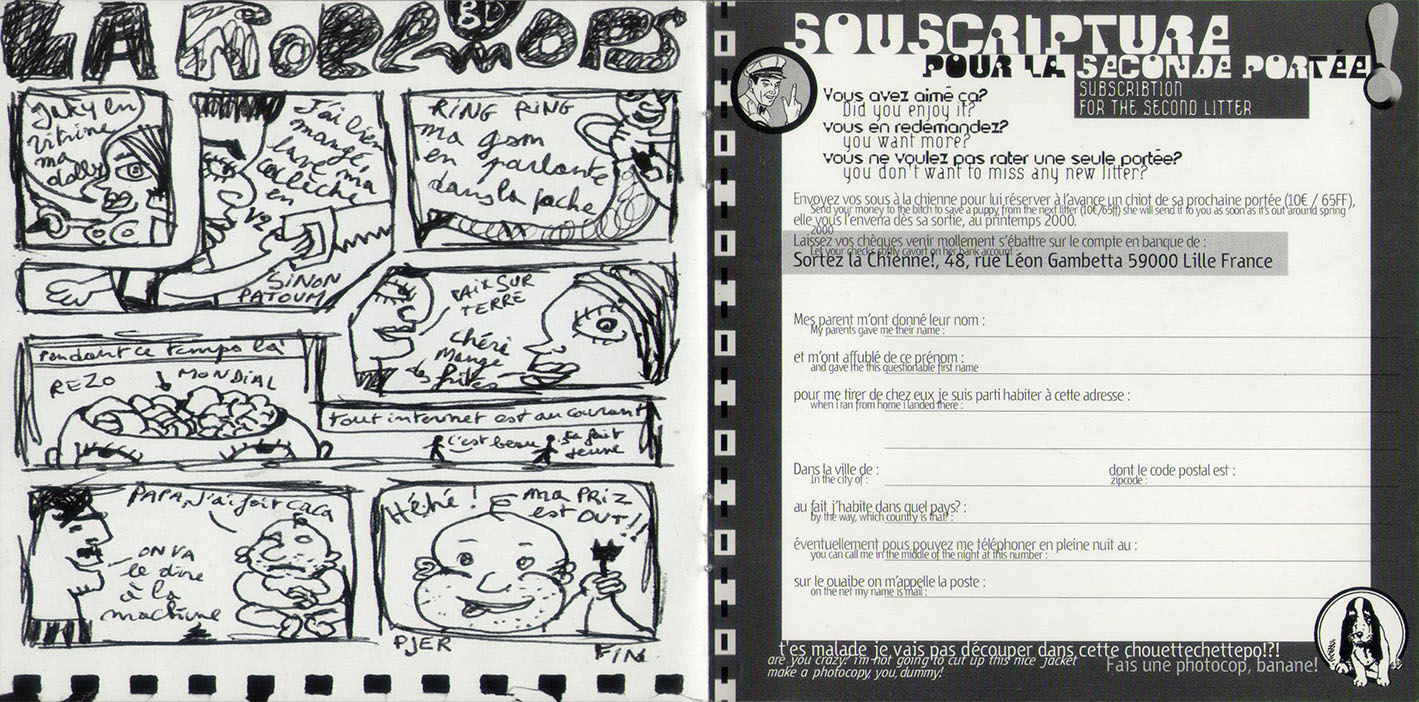 LA
BD
Jacky en
vitrine
ma
dolly
J'ai bien
mangé,
lavé ma
en
V2
SINON
PATOUM
RING RING
ma gsm
en parlante
dans la poche
PAIX SUR
TERRE
chéri
mange
des frites
pendant ce temps là
REZO
MONDIAL
tout internet est au courant
c'est beau
ça fait
jeune
PAPA, J'ai fait caca
ON VA
le dire
à la
machine
Héhé !
ma PRIZ
est OUT!!
PJER
FIN
SOUSCRIPTURE
POUR LA SECONDE PORTÉE!
SUBSCRIBTION
FOR THE SECOND LITTER
Vous avez aimé ça?
Did you enjoy it?
Vous en redemandez?
you want more?
Vous ne voulez pas rater une seule portée?
you don't want to miss any new litter?
Envoyez vos sous à la chienne pour lui réserver à l'avance un chiot de sa prochaine portée (10€ / 65FF),
Send your money to the bitch to save a puppy from the next litter (10€/65ff) she will send it to you as soon as it's out around spring
elle vous l'enverra dès sa sortie, au printemps 2000.
2000
Laissez vos chèques venir mollement s'ébattre sur le compte en banque de :
Let your checks softly cavort on her bank account :
Sortez la Chienne!, 48, rue Léon Gambetta 59000 Lille France
Mes parent m'ont donné leur nom :
My parents gave me their name :
et m'ont affublé de ce prénom :
and gave me this questionable first name
pour me tirer de chez eux je suis parti habiter à cette adresse :
when i ran from home i landed there :
Dans la ville de :
In the city of :
dont le code postal est :
zipcode :
au fait j'habite dans quel pays? :
by the way, which country is that? :
éventuellement pous pouvez me téléphoner en pleine nuit au :
you can call me in the middle of the night at this number :
sur le ouaibe on m'appelle la poste :
on the net my name is mail :
t'es malade je vais pas découper dans cette chouettechettepo!?!
are you crazy? i'm not going to cut up this nice jacket
make a photocopy, you, dummy!
Fais une photocop, banane!